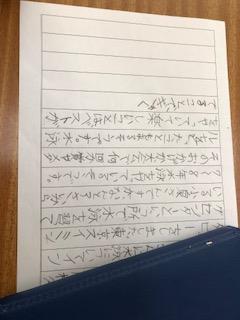 さんに水泳についてイン
ビューをしました。東京スイミン
グセンターという所で水泳を習って
いる小泉さんですがなんと3さいから
7〜8年水泳をやっているそうです。
そのおかげか大会で何回か賞やメダ
ルをとったこともあるそうです。水泳
をやっていて楽しいことはベストが
でることで